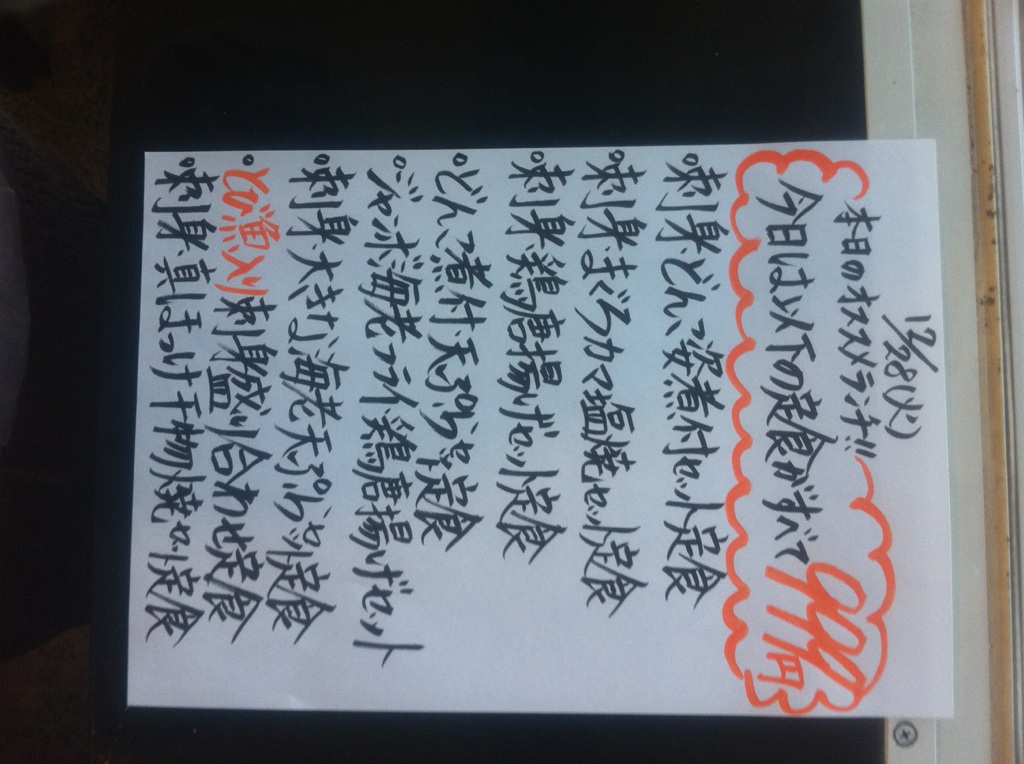 12/28(火)
本日のオススメランチ!!
今日は以下の定食がすべて990円
・刺身どんこ姿煮付セット定食
・刺身まぐろカマ塩焼セット定食
・刺身鶏唐揚げセット定食
・どんこ煮付天ぷらセット定食
・ジャンボ海老フライ鶏唐揚げセット
・刺身大きな海老天ぷらセット定食
・刺身盛り合わせ定食
・刺身真ほっけ干物焼セット定食